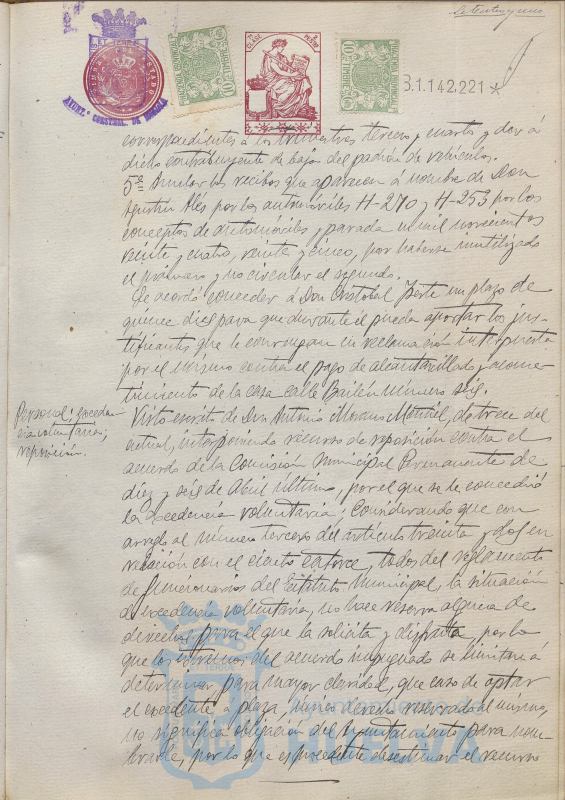 Setenta y uno
1ª CLASE
3 PESETAS
B.1.142.221 *
AYUNT.º CONSTNAL. DE HUELVA
correspondientes á los trimestres tercero y cuarto y dar á
dicho contribuyente de baja del padrón de vehículos.
5º Anular los recibos que aparecen á nombre de Don
Agustín Alés por los automóviles H-270 y H-253 por los
conceptos de automóviles y parada en mil novecientos
veinte y cuatro, veinte y cinco, por haberse inutilizado
el primero y no circular el segundo.
Se acordó conceder á Don Cristobal un plazo de
quince dias para que durante él pueda aportar los jus-
tificantes que le convengan en reclamación interpuesta
por el mismo contra el pago de alcantarillado y acome-
timiento de la casa calle Bailén número seis.
Personal; exceden-
cia voluntarias;
reposición.
Visto escrito de Don Antonio Moreno, de trece del
actual, interponiendo recurso de reposición contra el
acuerdo de la Comisión Municipal Permanente de
diez y seis de Abril último, por el que se le concedió
la excedencia voluntaria; Considerando que con
arreglo al número tercero del artículo treinta y dos en
relación con el ciento catorce, todos del reglamento
de funcionarios del Estatuto Municipal, la situación
de excedencia voluntaria, no hace reserva alguna de
derechos para el que la solicita y disfruta, por lo
que los términos del acuerdo impugnado se limitan á
determinar, para mayor claridad, que caso de optar
el excedente á plaza, único derecho reservado al mismo,
no significa obligación del Ayuntamiento para nom-
brarle, por lo que es procedente desestimar el recurso
HUELVA